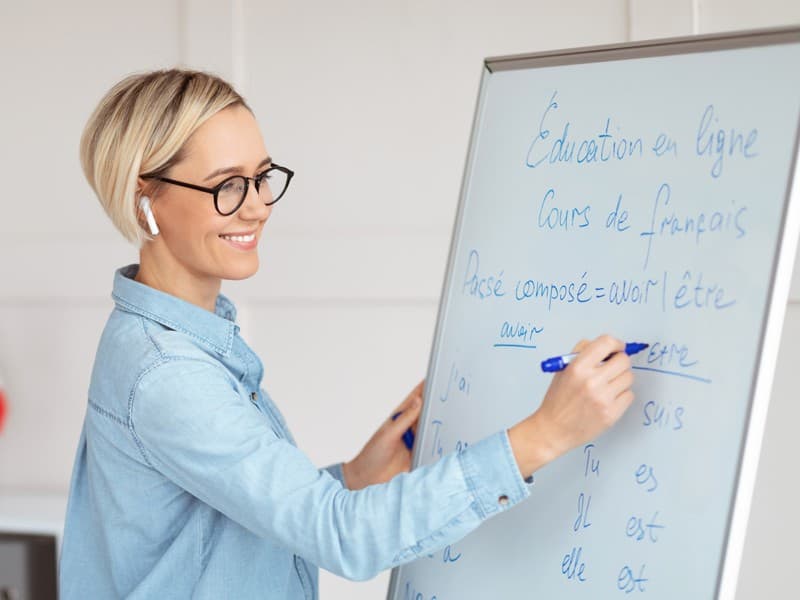 Éducation en ligne
Cours de français
Passé composé = avoir | être
avoir
être
j'ai
suis
Tu
Tu es
Il est
a elle est